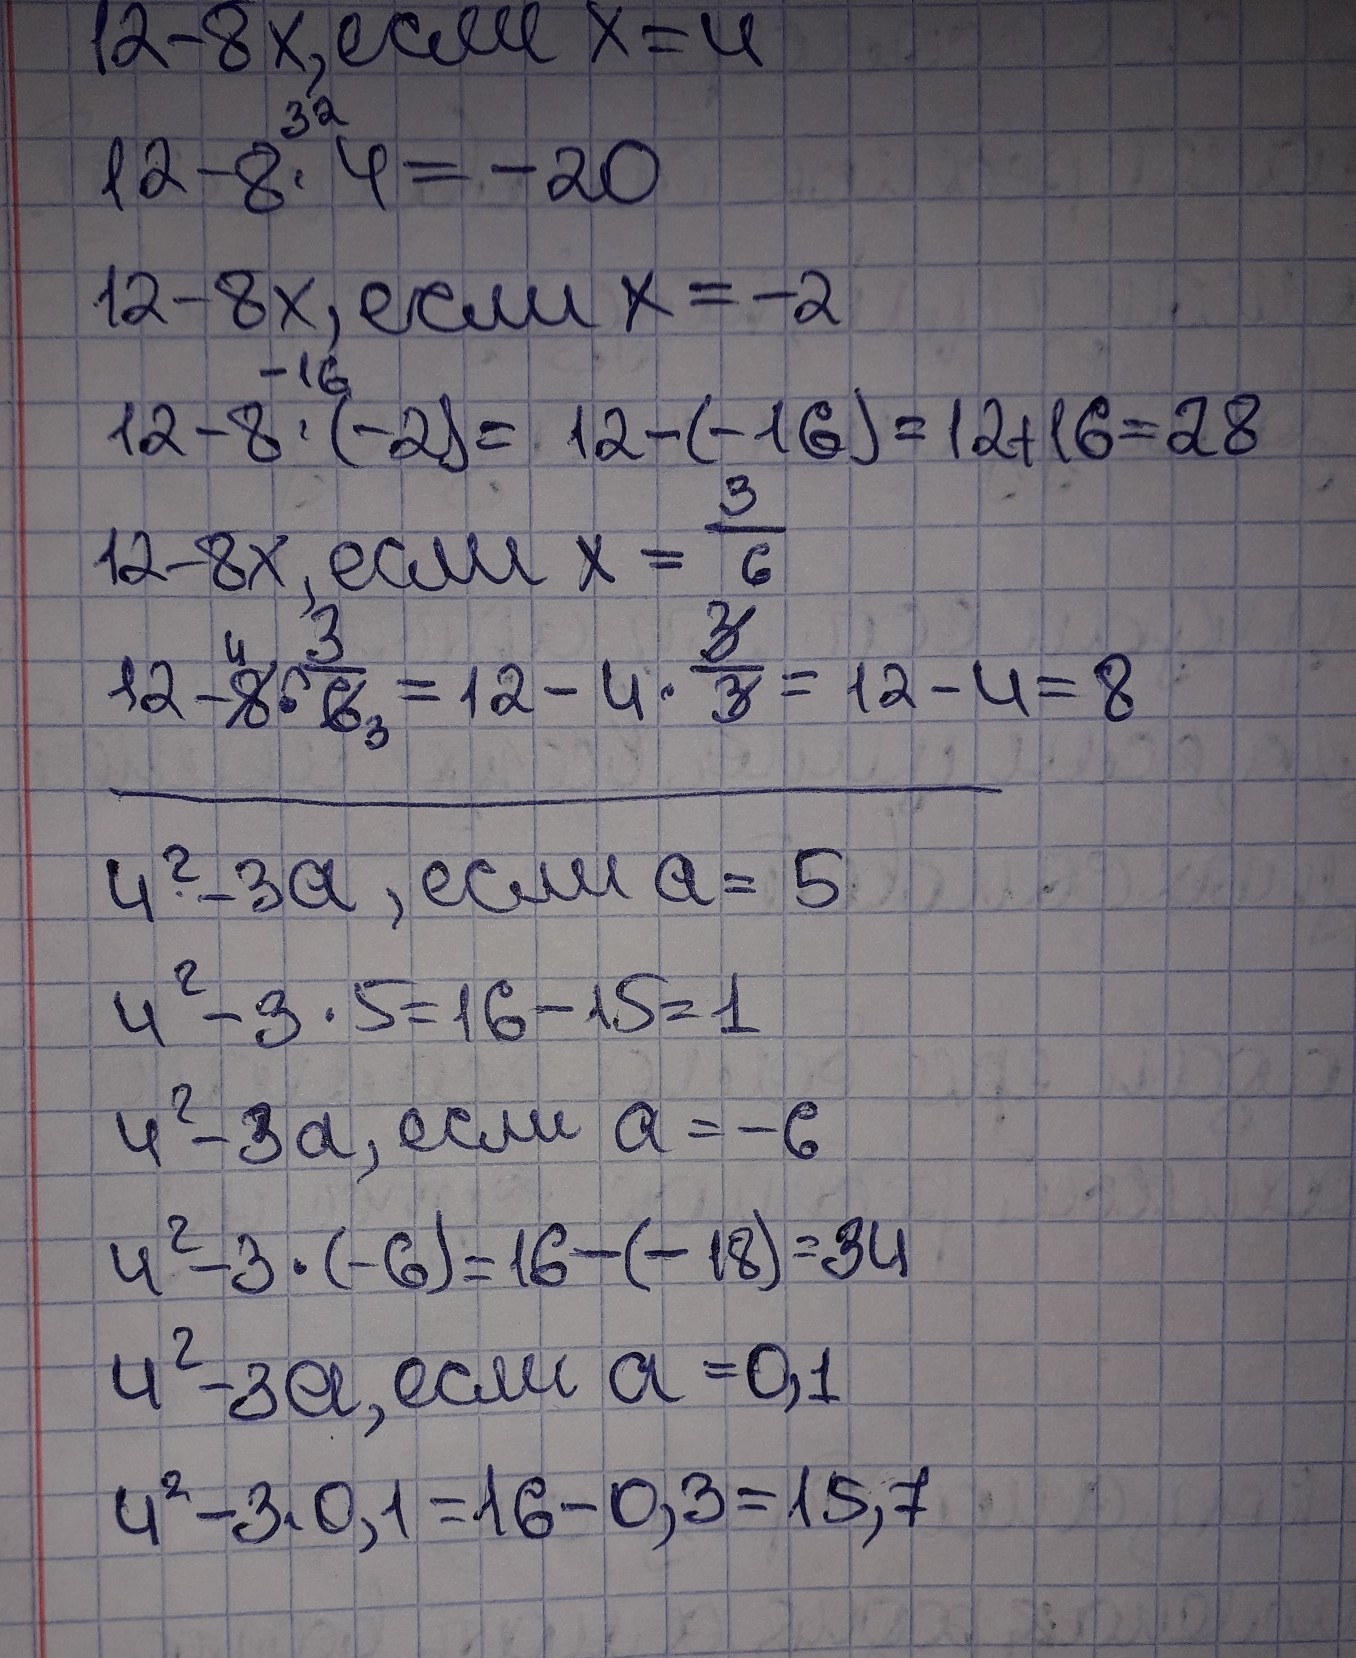 12-8x, если x=4
32
12-8·4=-20
12-8x, если x=-2
-16
12-8·(-2)= 12-(-16)=12+16=28
12-8x, если x = 3/6
12-8 4 · 3/6 3 = 12-4·3/3 = 12-4=8
4²-3a, если a=5
4²-3·5=16-15=1
4²-3a, если a=-6
4²-3·(-6)=16-(-18)=34
4²-3a, если a=0,1
4²-3·0,1=16-0,3=15,7